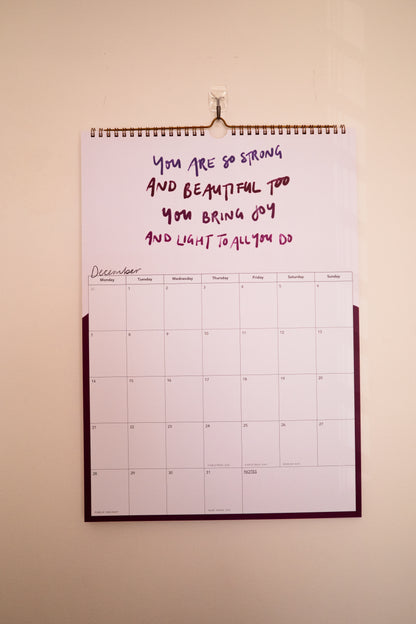 YOU ARE SO STRONG
AND BEAUTIFUL TOO
YOU BRING JOY
AND LIGHT TO ALL YOU DO
December
Monday Tuesday Wednesday Thursday Friday Saturday Sunday
30 1 2 3 4 5 6
7 8 9 10 11 12 13
14 15 16 17 18 19 20
21 22 23 24 25 26 27
28 29 30 31 NOTES